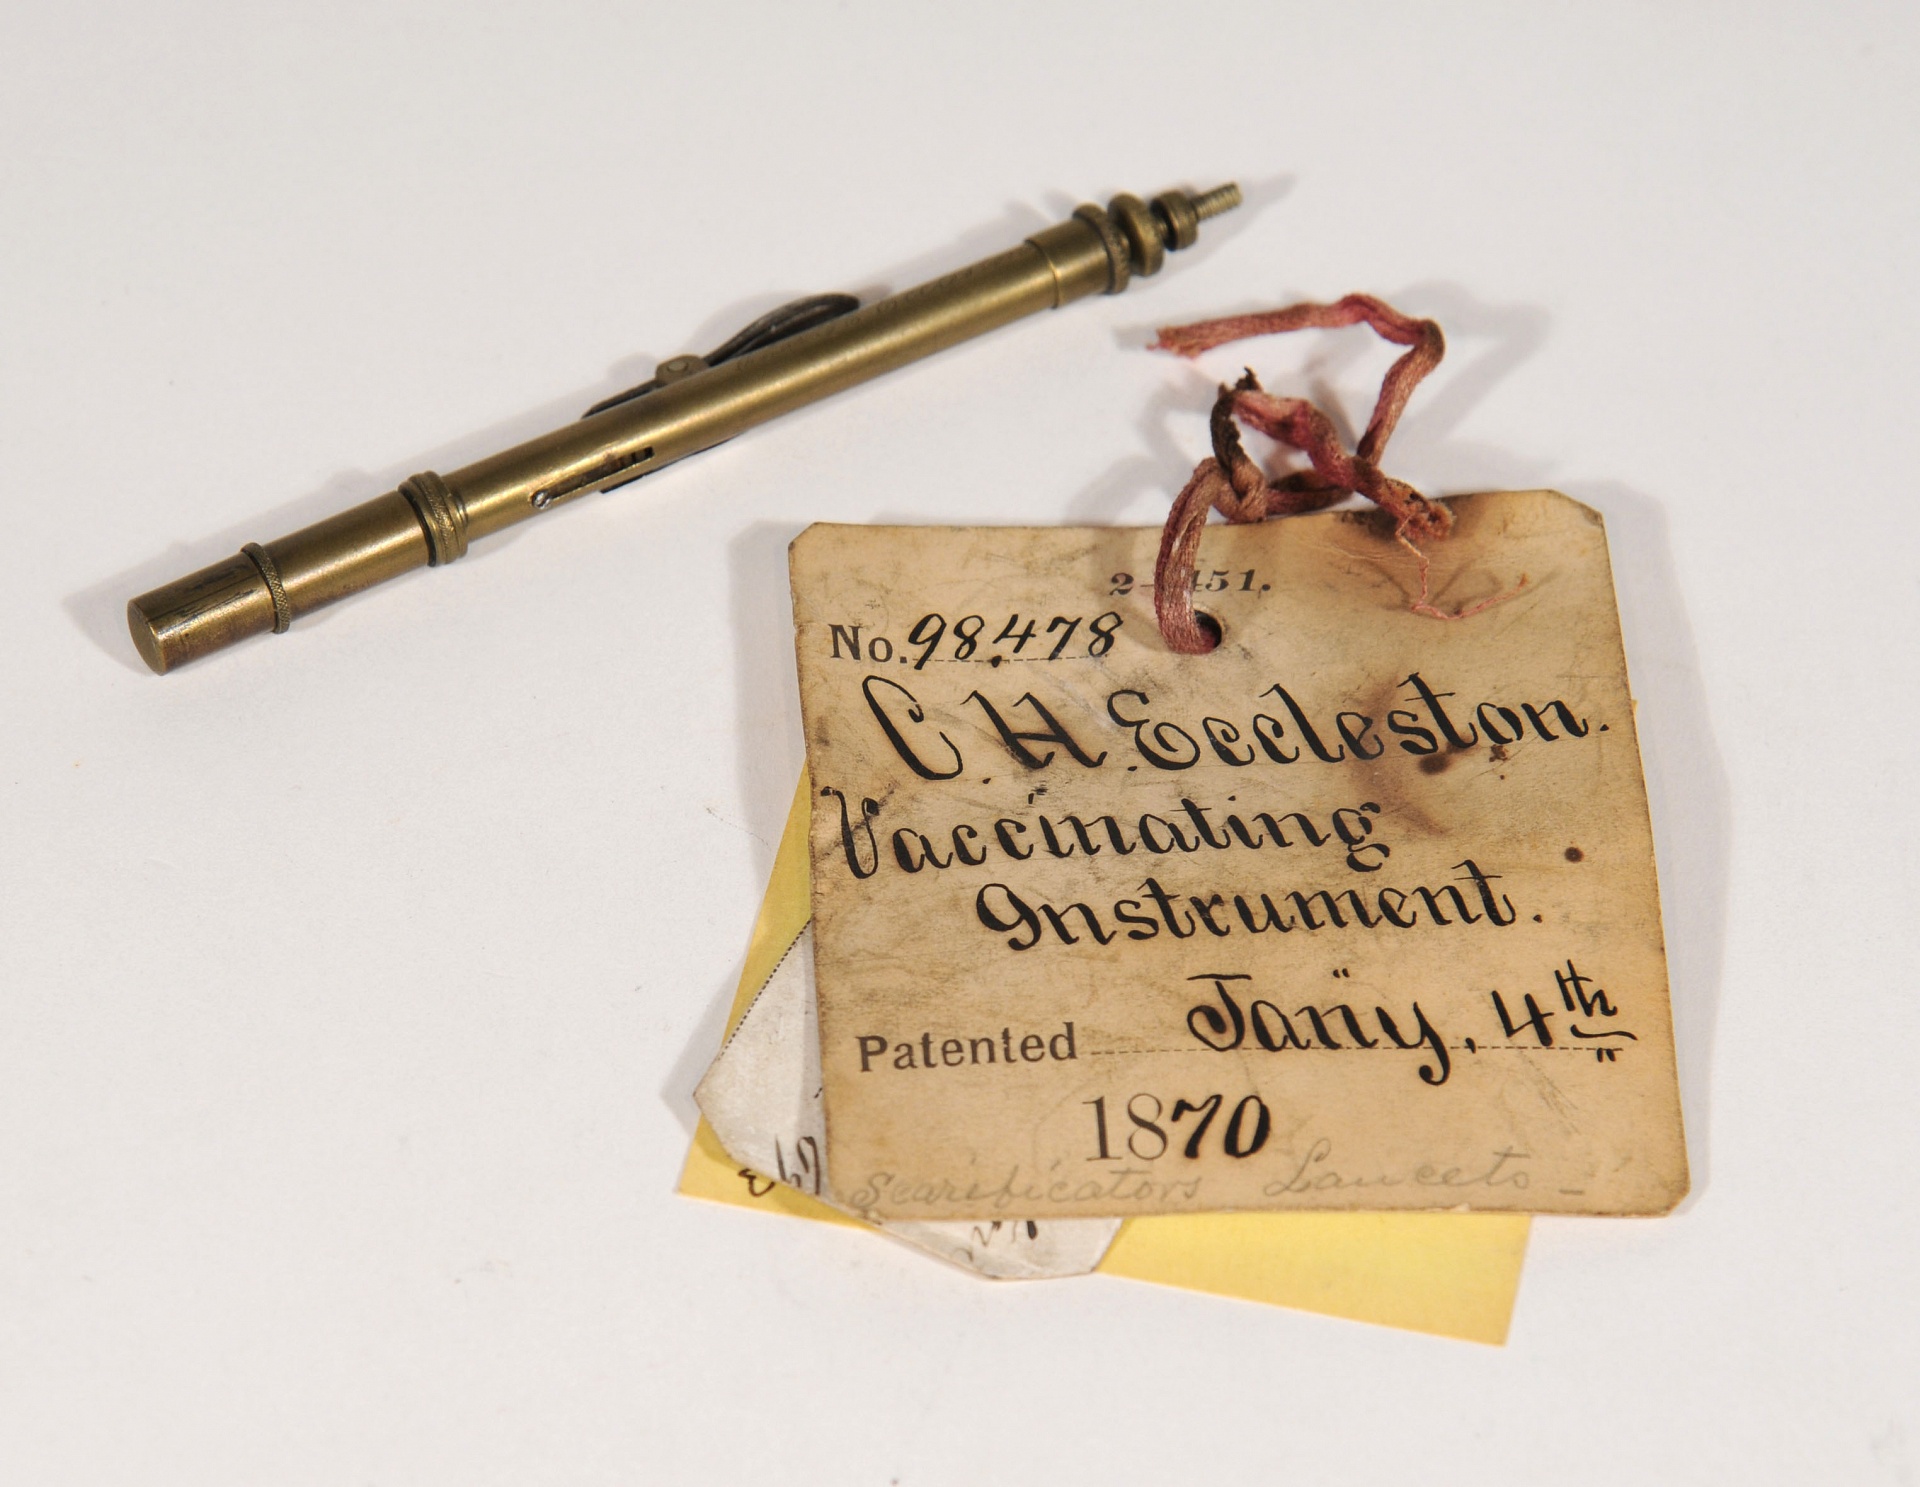 2-451.
No. 98.478
C. H. Eccleston.
Vaccinating
Instrument.
Patented Jan'y, 4th
1870
Scarificators Lancets -